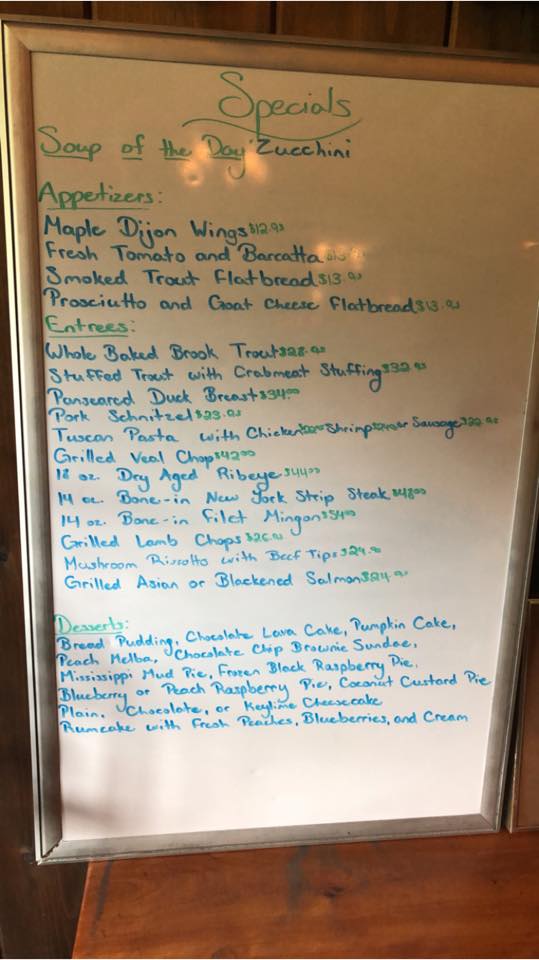 Specials
Soup of the Day Zucchini
Appetizers:
Maple Dijon Wings $12.95
Fresh Tomato and Barcatta
Smoked Trout Flatbread $13.95
Prosciutto and Goat Cheese Flatbread $13.95
Entrees:
Whole Baked Brook Trout $28.95
Stuffed Trout with Crabmeat Stuffing $32.95
Panseared Duck Breast $34.00
Pork Schnitzel $23.95
Tuscan Pasta with Chicken Shrimp or Sausage $22.95
Grilled Veal Chop $42.00
18 oz. Dry Aged Ribeye $44.00
14 oz. Bone-in New York Strip Steak $48.00
14 oz. Bone-in Filet Mingon $54.00
Grilled Lamb Chops $26.95
Mushroom Risotto with Beef Tips $24.95
Grilled Asian or Blackened Salmon $24.95
Desserts:
Bread Pudding, Chocolate Lava Cake, Pumpkin Cake,
Peach Melba, Chocolate Chip Brownie Sundae,
Mississippi Mud Pie, Frozen Black Raspberry Pie,
Blueberry or Peach Raspberry Pie, Coconut Custard Pie
Plain, Chocolate, or Keylime Cheesecake
Rumcake with Fresh Peaches, Blueberries, and Cream